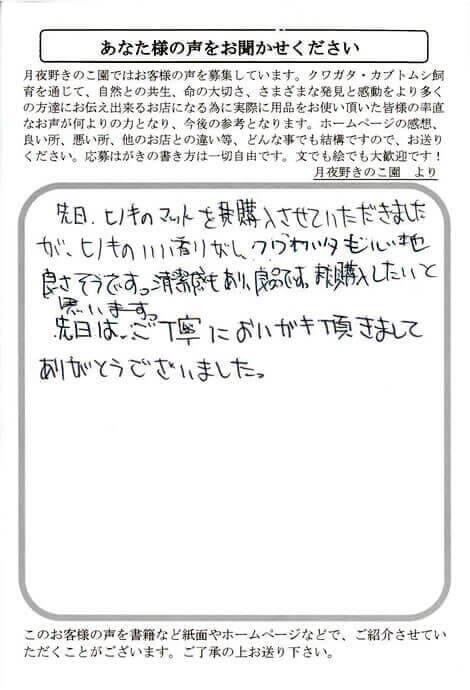 あなた様の声をお聞かせください
月夜野きのこ園ではお客様の声を募集しています。クワガタ・カブトムシ飼
育を通じて、自然との共生、命の大切さ、さまざまな発見と感動をより多く
の方達にお伝え出来るお店になる為に実際に用品をお使い頂いた皆様の率直
なお声が何よりの力となり、今後の参考となります。ホームページの感想、
良い所、悪い所、他のお店との違い等、どんな事でも結構ですので、お送り
ください。応募はがきの書き方は一切自由です。文でも絵でも大歓迎です！
月夜野きのこ園　より
先日、ヒノキのマットを購入させていただきました
が、ヒノキのいい香りがし、クワガタも心地
良さそうです。清潔感もあり、良品です。購入したいと
思います。
先日は、ご丁寧においがキ頂きまして
ありがとうございました。
このお客様の声を書籍など紙面やホームページなどで、ご紹介させてい
ただくことがございます。ご了承の上お送り下さい。